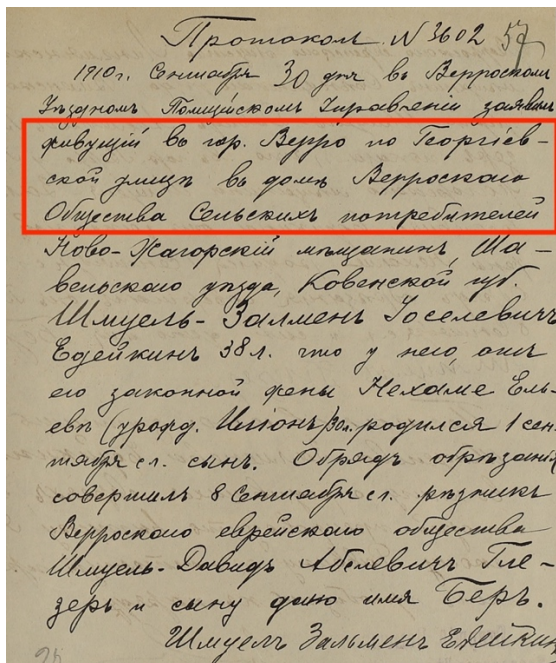 Протоколъ N 3602 57
1910 г. Сентября 30 дня въ Верроскомъ
Уѣздномъ Полицейскомъ Управленіи заявилъ
живущій въ гор. Верро по Георгіев-
ской улицѣ въ домѣ Верроскаго
Общества Сельскихъ потребителей
Ново-Жагорскій мѣщанинъ, Ша-
вельскаго уѣзда, Ковенской губ.
Шмуель-Залменъ Іоселевичъ
Едейкинъ 38 л. что у него, отъ
его законной жены Нехаме Ель-
евѣ (урожд. родился 1 сен-
тября с.г. сынъ. Обрядъ обрѣзанія
совершилъ 8 Сентября с.г. рѣзникъ
Верроскаго еврейскаго общества
Шмуель-Давидъ Абелевичъ Гле-
зеръ и сыну дано имя Беръ.
Шмуелъ Залменъ Едейкинъ